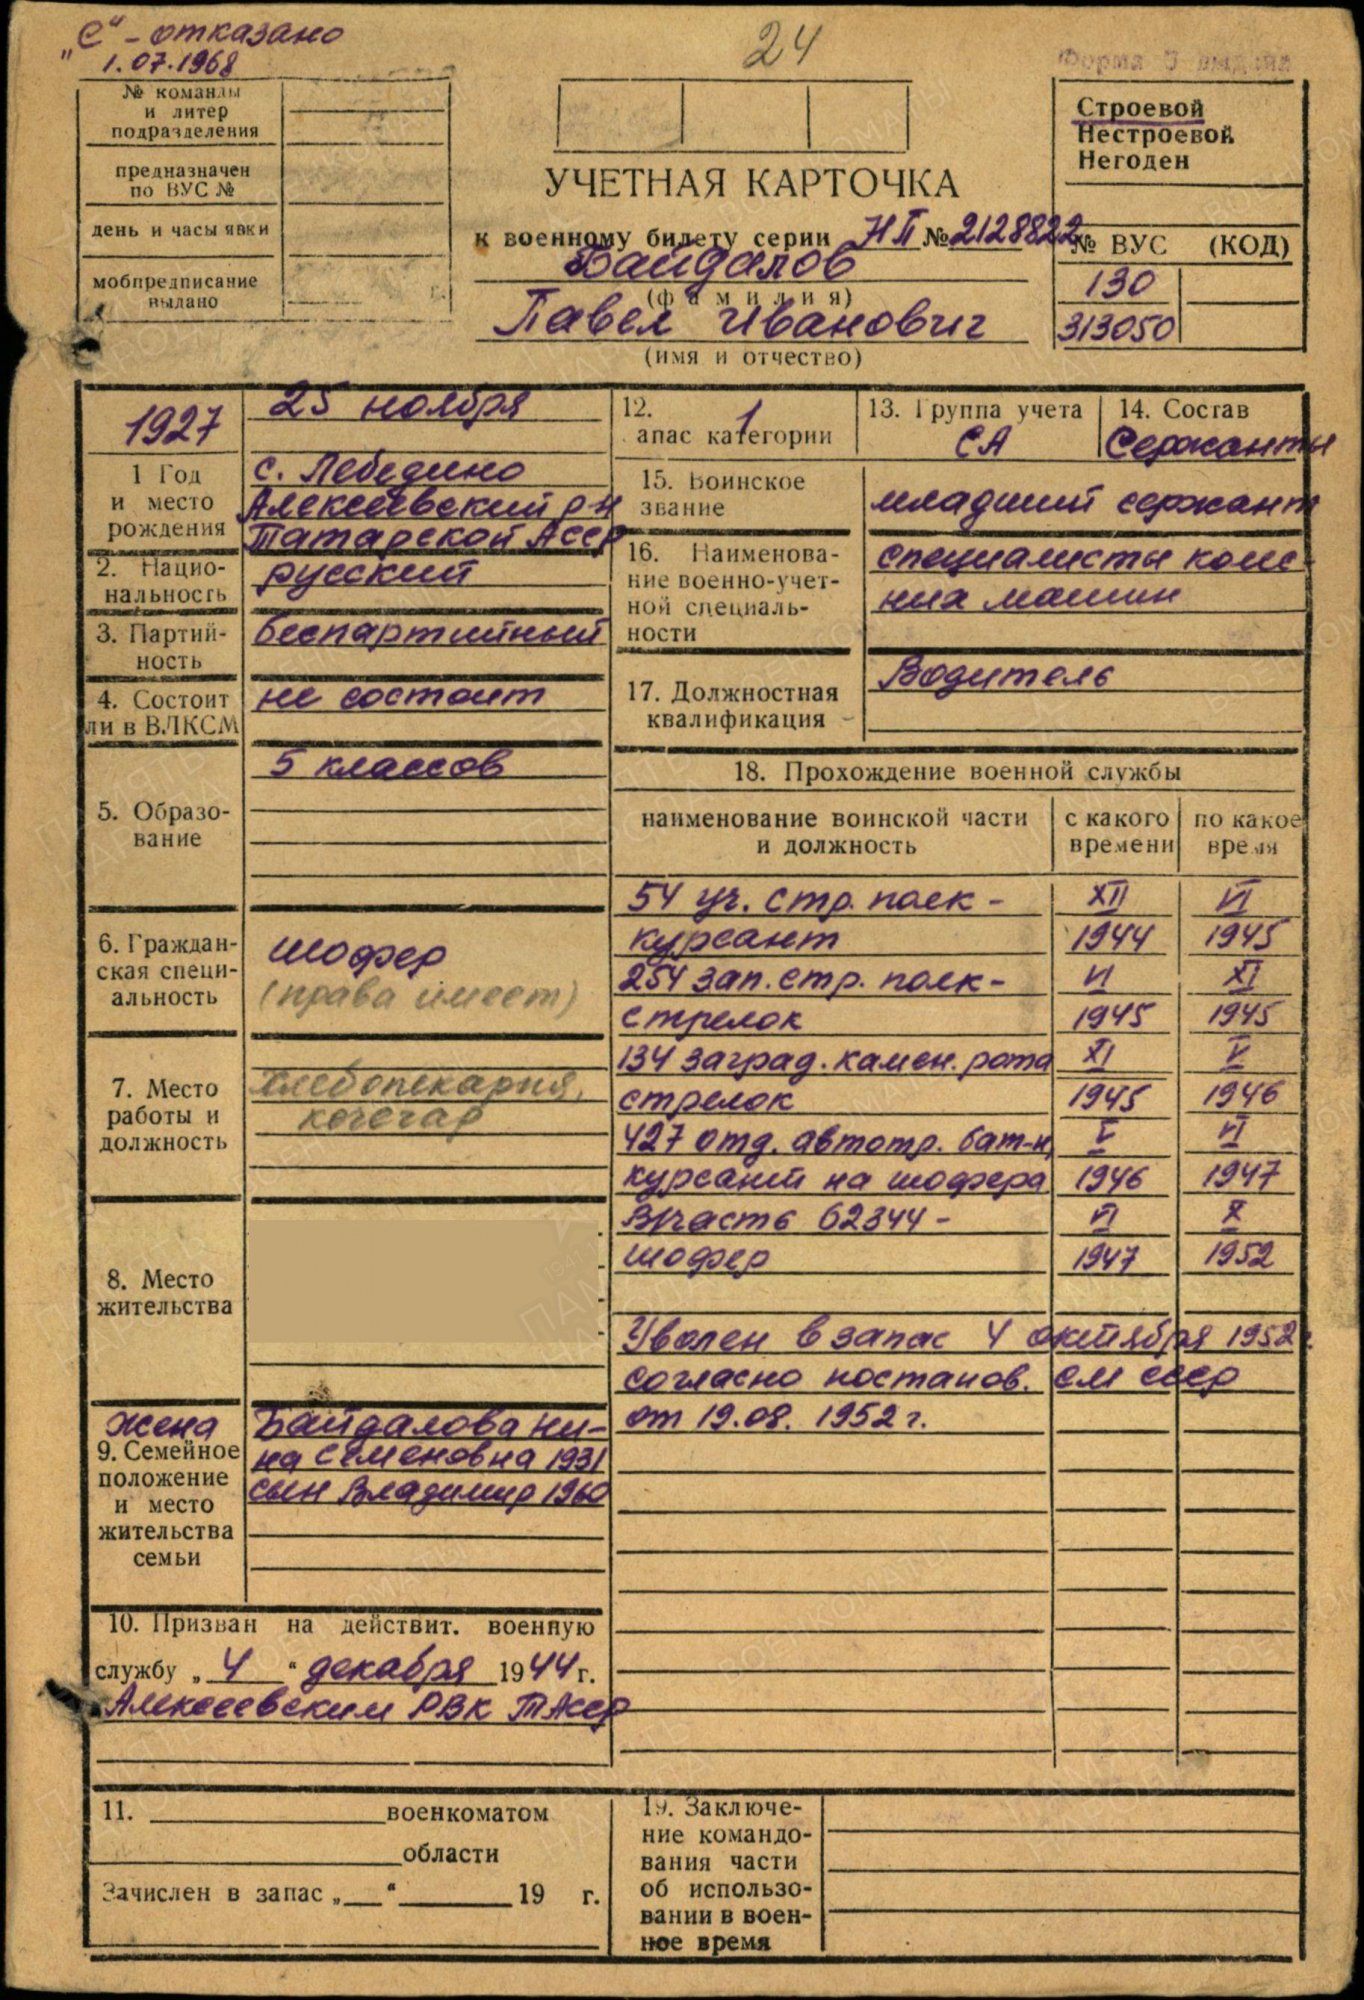 „С“ - отказано
1.07.1968
24
Форма
№ команды
и литер
подразделения
предназначен
по ВУС №
день и часы явки
мобпредписание
выдано
г.
УЧЕТНАЯ КАРТОЧКА
к военному билету серии НП № 2128822
Байдалов
(фамилия)
Павел Иванович
(имя и отчество)
Строевой
Нестроевой
Негоден
№ ВУС (КОД)
130
313050
1927
25 ноября
1 Год
и место
рождения
с. Лебедино
Алексеевский р-н
Татарской АССР
2. Нацио-
нальность
русский
3. Партий-
ность
беспартийный
4. Состоит
ли в ВЛКСМ
не состоит
5. Образо-
вание
5 классов
6. Граждан-
ская специ-
альность
шофер
(права имеет)
7. Место
работы и
должность
хлебопекарня,
кочегар
8. Место
жительства
жена
9. Семейное
положение
и место
жительства
семьи
Байдалова Ни-
на Семеновна 1931
сын Владимир 1960
10. Призван на действит. военную
службу „ 4 “ декабря 1944 г.
Алексеевским РВК ТАССР
11. военкоматом
области
Зачислен в запас „ “ 19 г.
12. 1
апас категории
13. Группа учета
СА
14. Состав
Сержанты
15. Воинское
звание
младший сержант
16. Наименова-
ние военно-учет-
ной специаль-
ности
специалисты колес-
ных машин
17. Должностная
квалификация
Водитель
18. Прохождение военной службы
наименование воинской части
и должность
с какого
времени
по какое
время
54 уч. стр. полк - XII VI
курсант 1944 1945
254 зап. стр. полк - VI XI
стрелок 1945 1945
134 заград. камен. рота XI V
стрелок 1945 1946
427 отд. автотр. бат-н, V VI
курсант на шофера 1946 1947
В/часть 62344 - VI X
шофер 1947 1952
Уволен в запас 4 октября 1952 г.
согласно постанов. СМ СССР
от 19.08. 1952 г.
19. Заключе-
ние командо-
вания части
об использо-
вании в воен-
ное время